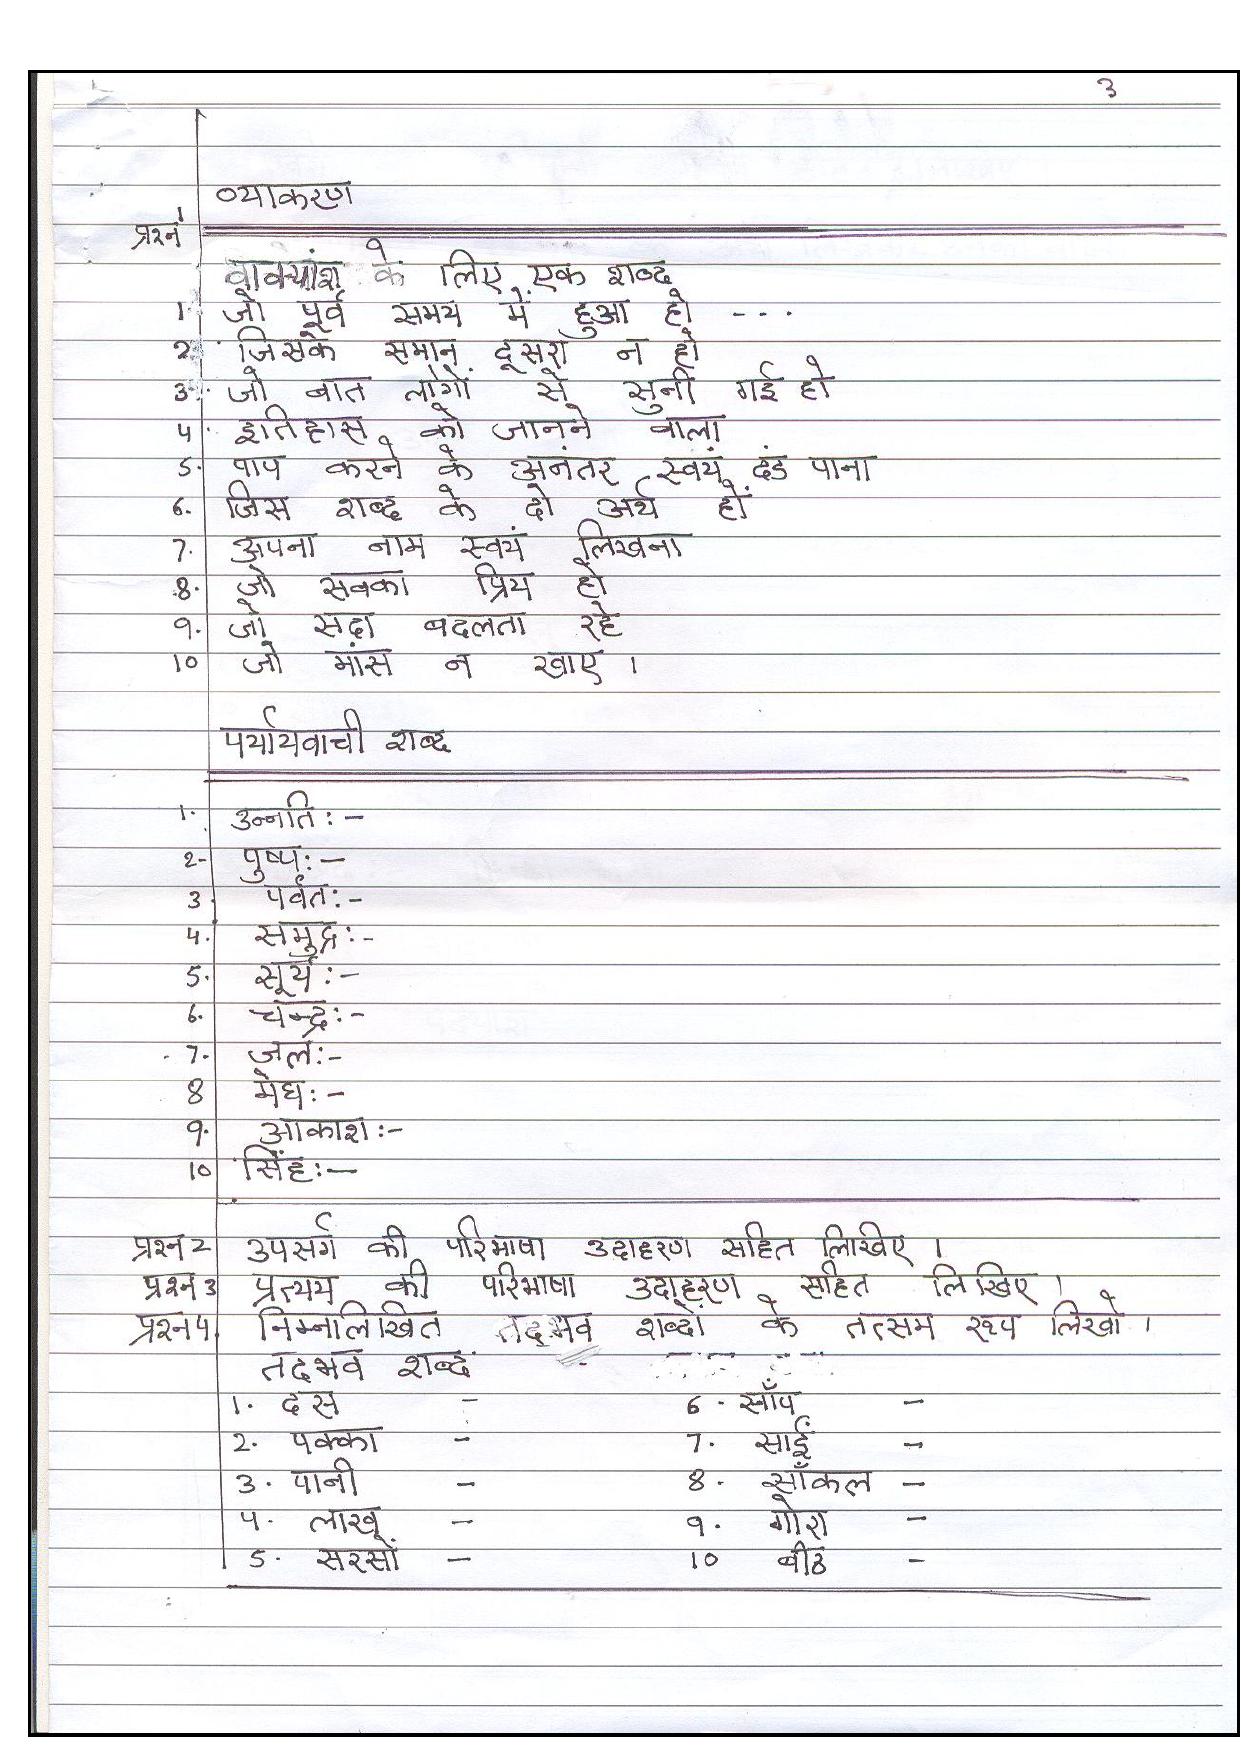 3
व्याकरण
प्रश्न 1
वाक्यांश के लिए एक शब्द
1 जो पूर्व समय में हुआ हो ---.
2 जिसके समान दूसरा न हो
3. जो बात लोगों से सुनी गई हो
4. इतिहास को जानने वाला
5. पाप करने के अनंतर स्वयं दंड पाना
6. जिस शब्द के दो अर्थ हों
7. अपना नाम स्वयं लिखना
8. जो सबका प्रिय हो
9. जो सदा बदलता रहे
10 जो मांस न खाए ।
पर्यायवाची शब्द
1. उन्नति :-
2- पुष्प :-
3. पर्वत :-
4. समुद्र :-
5. सूर्य :-
6. चन्द्र :-
7. जल :-
8 मेघ :-
9. आकाश :-
10 सिंह :-
प्रश्न 2 उपसर्ग की परिभाषा उदाहरण सहित लिखिए ।
प्रश्न 3 प्रत्यय की परिभाषा उदाहरण सहित लिखिए ।
प्रश्न 4. निम्नलिखित तदभव शब्दों के तत्सम रूप लिखो ।
तदभव शब्द
1. दस - 6. साँप -
2. पक्का - 7. साईं -
3. पानी - 8. साँकल -
4. लाखू - 9. गोरा -
5. सरसों - 10 बीठ -